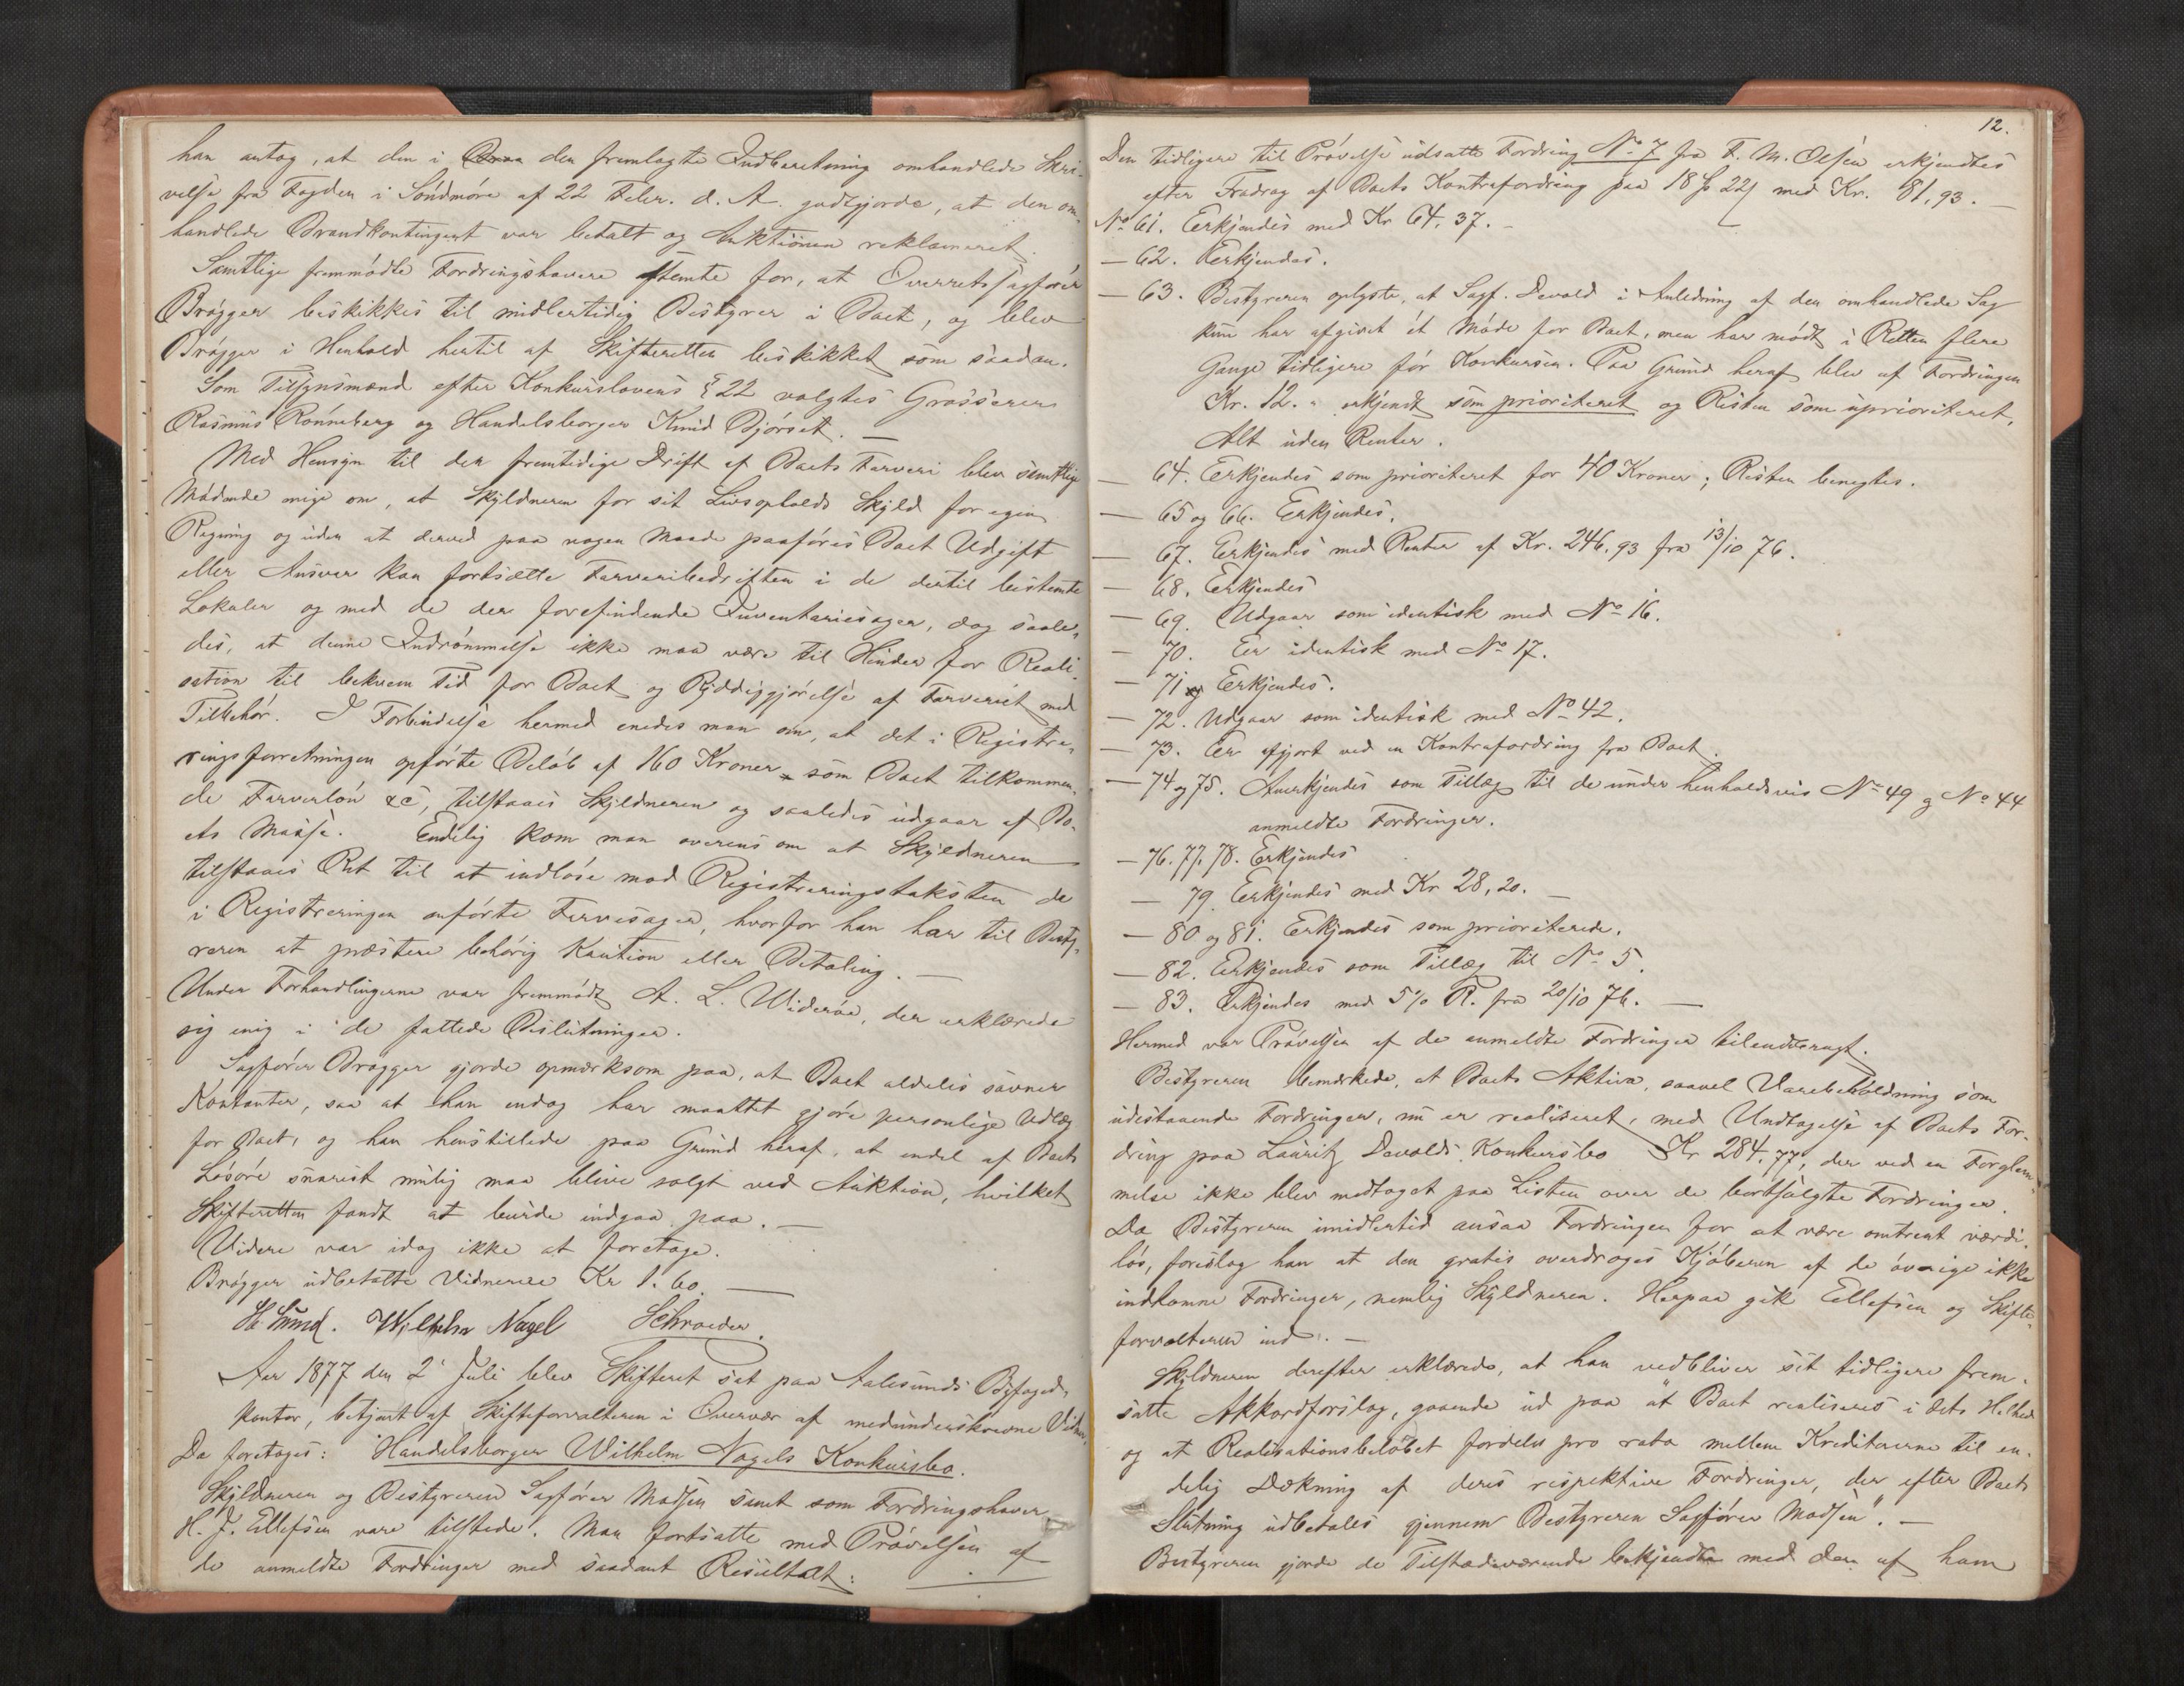 han antog, at den i den fremlagte Indberetning omhandlede Skri-
velse fra Fogden i Söndmöre af 22 Febr. d. A. godtgjorde, at den om-
handlede Brandkontingent var betalt og Auktionen reklameret.
Samtlige fremmödte Fordringshavere stemte for, at Overretssagförer
Brögger beskikkes til midlertidig Bestyrer i Boet, og blev
Brögger i Henhold hertil af Skifteretten beskikket som saadan.
Som Tilsynsmænd efter Konkurslovens § 22 valgtes Grosserer
Rasmus Rönneberg og Handelsborger Knud Bjørset. —
Med Hensyn til den fremtidige Drift af Boets Farveri blev samtlige
Mödende enige om, at Skyldneren for sit Livsopholds Skyld for egen
Regning og uden at derved paa nogen Maade paaföres Boet Udgift
eller Ansvar kan fortsætte Farveribedriften i de dertil bestemte
Lokaler og med de der forefindende Inventariesager, dog saale-
des, at denne Indrömmelse ikke maa være til Hinder for Reali-
sation til bekvem Tid for Boet og Ryddiggjörelse af Farveriet med
Tilbehör. I Forbindelse hermed enedes man om, at det i Registre-
ringsforretningen opförte Belöb af 160 Kroner, som Boet tilkommen-
de Farverlön &c, tilstaaes Skyldneren og saaledes udgaar af Bo-
ets Masse. Endelig kom man overens om at Skyldneren
tilstaaes Ret til at indlöse mod Registreringstaksten de
i Registreringen anförte Farvesager, hvorfor han har til Besty-
reren at præstere behörig Kaution eller Betaling. —
Under Forhandlingerne var fremmödt A. L. Wideröe, der erklærede
sig enig i de fattede Beslutninger.
Sagförer Brögger gjorde opmærksom paa, at Boet aldeles savner
Kontanter, saa at han endog har maattet gjöre personlige Udlæg
for Boet, og han henstillede paa Grund heraf, at endel af Boets
Lösöre snarest mulig maa blive solgt ved Auktion, hvilket
Skifteretten fandt at burde indgaa paa. —
Videre var idag ikke at foretage.
Brögger udbetalte Vidnerne Kr 1.60. —
Sund. Wilhelm Nagel Schroeder.
Aar 1877 den 2 Juli blev Skifteret sat paa Aalesunds Byfoged-
kontor, betjent af Skifteforvalteren i Overvær af medunderskrevne Vidner.
Da foretages: Handelsborger Wilhelm Nagels Konkursbo.
Skyldneren og Bestyreren Sagförer Madsen samt som Fordringshaver
H. J. Ellefsen vare tilstede. Man fortsatte med Prövelsen af
de anmeldte Fordringer med saadant Resultat:
12.
Den tidligere til Prövelse udsatte Fordring No 7 fra F. M. Olsen erkjendtes
efter Fradrag af Boets Kontrafordring paa 18 ß 22 med Kr. 81,93. —
No 61. Erkjendes med Kr 64,37. —
— 62. Erkjendes.
— 63. Bestyreren oplyste, at Sagf. Devold i Anledning af den omhandlede Sag
kun har afgivet ét Möde for Boet, men har mödt i Retten flere
Gange tidligere för Konkursen. Paa Grund heraf blev af Fordringen
Kr. 12. " erkjendt som prioriteret og Resten som uprioriteret,
Alt uden Renter.
— 64. Erkjendes som prioriteret for 40 Kroner; Resten benegtes.
— 65 og 66. Erkjendes.
— 67. Erkjendes med Renter af Kr. 246.93 fra 13/10 76.
— 68. Erkjendes
— 69. Udgaar som identisk med No 16.
— 70. Er identisk med No 17.
— 71 Erkjendes.
— 72. Udgaar som identisk med No 42.
— 73. Er afgjort ved en Kontrafordring fra Boet.
— 74 og 75. Anerkjendes som Tillæg til de under henholdsvis No 49 og No 44
anmeldte Fordringer.
— 76. 77. 78. Erkjendes
— 79. Erkjendes med Kr 28,20. —
— 80 og 81. Erkjendes som prioriterede.
— 82. Erkjendes som Tillæg til No 5.
— 83. Erkjendes med 5% R. fra 20/10 76. —
Hermed var Prövelsen af de anmeldte Fordringer tilendebragt.
Bestyreren bemærkede, at Boets Aktiva, saavel Varebeholdning som
udestaaende Fordringer, nu er realiseret, med Undtagelse af Boets For-
dring paa Lauritz Devolds Konkursbo Kr 284,77, der ved en Forglem-
melse ikke blev medtaget paa Listen over de bortsolgte Fordringer.
Da Bestyreren imidlertid ansaa Fordringen for at være omtrent værdi-
lös, foreslog han at den gratis overdroges Kjöberen af de övrige ikke
indkomne Fordringer, nemlig Skyldneren. Herpaa gik Ellefsen og Skifte-
forvalteren ind. —
Skyldneren derefter erklærede, at han vedbliver sit tidligere frem-
satte Akkordforslag, gaaende ud paa "at Boet realiseres i dets Helhed
og at Realisationsbelöbet fordeles pro rata mellem Kreditorerne til en-
delig Dækning af deres respektive Fordringer, der efter Boets
Slutning udbetales gjennem Bestyreren Sagförer Madsen". —
Bestyreren gjorde de Tilstedeværende bekjendte med den af ham